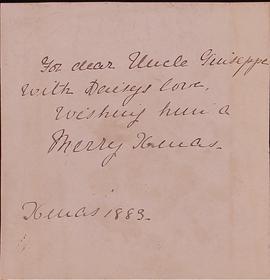 For dear Uncle Giuseppe
With Daisys love,
Wishing him a
Merry Xmas.
Xmas 1883.